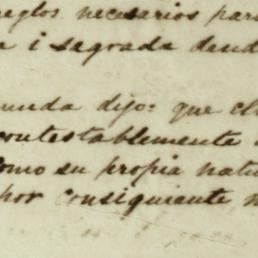 reglos necesarios para
a i sagrada deud
unda dijo: que el
contestablemente
como su propia natu
por consiguiente, n